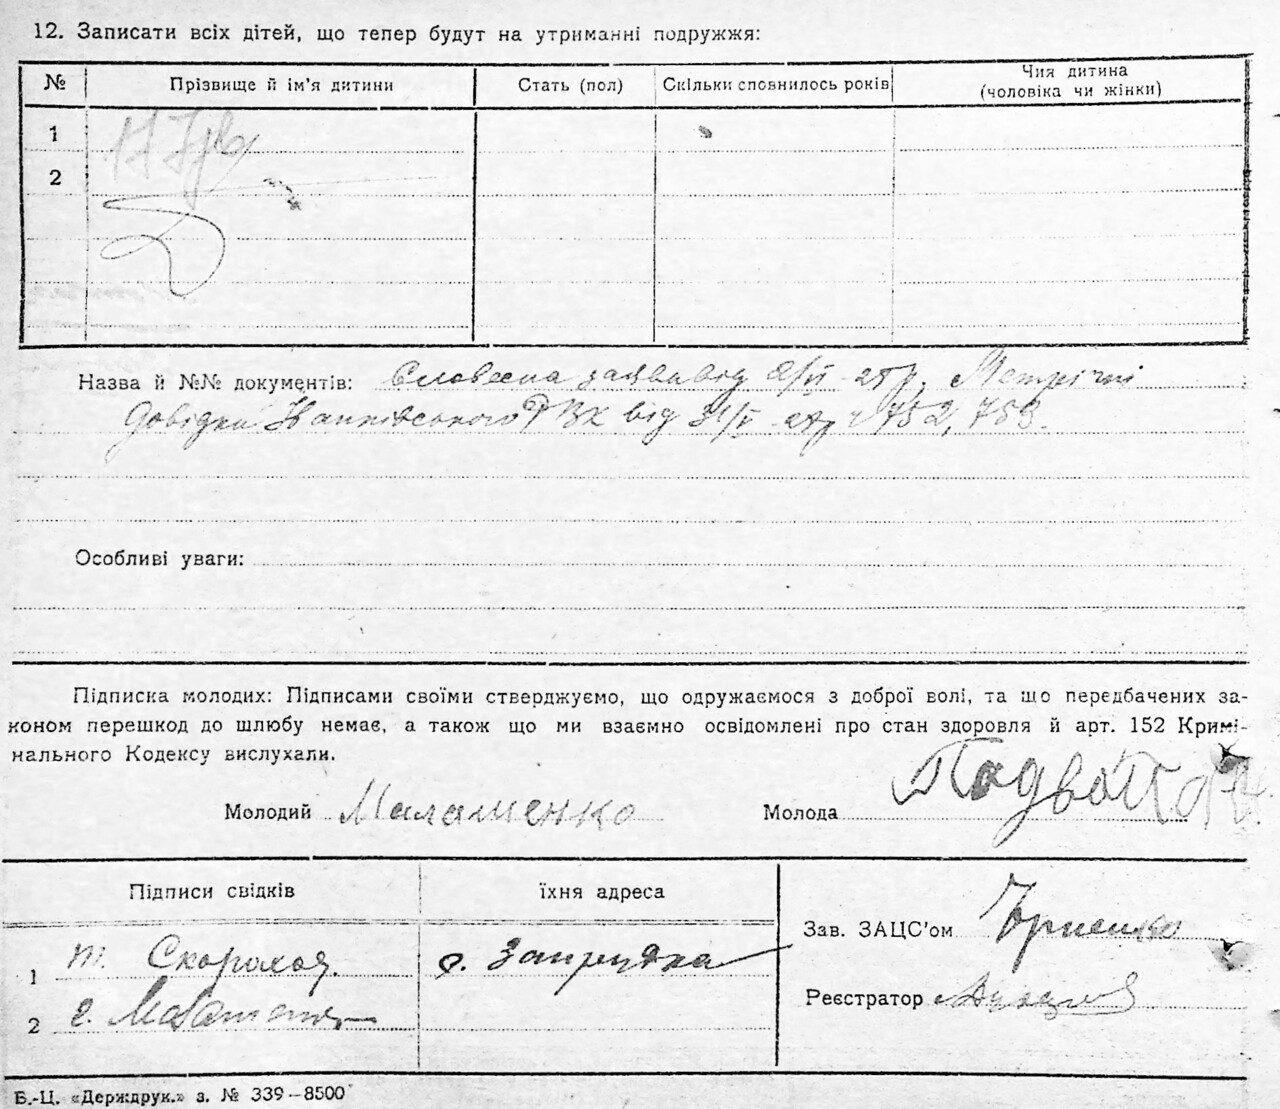 12. Записати всіх дітей, що тепер будут на утриманні подружжя:
№ Прізвище й ім'я дитини Стать (пол) Скільки сповнилось років Чия дитина (чоловіка чи жінки)
1
2
Назва й №№ документів: Словесна заява від 2/VI 25 р. Метричні
довідки Іванківського РВК від 31/V 25 р № 752, 753.
Особливі уваги:
Підписка молодих: Підписами своїми стверджуємо, що одружаємося з доброї волі, та що передбачених за-
коном перешкод до шлюбу немає, а також що ми взаємно освідомлені про стан здоровля й арт. 152 Кримі-
нального Кодексу вислухали.
Молодий Малашенко Молода
Підписи свідків їхня адреса
Зав. ЗАЦС'ом
1 Т. Скороход с. Запрудка
Реєстратор
2 С.
Б.-Ц. «Держдрук.» з. № 339–8500